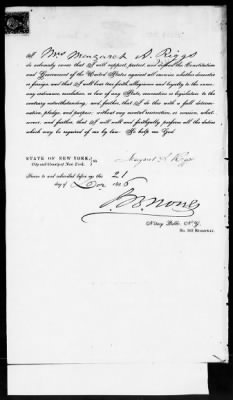 I, Mrs Margaret A. Riggs
do solemnly swear that I will support, protect and defend the Constitution
and Government of the United States against all enemies, whether domestic
or foreign, and that I will bear true faith, allegiance and loyalty to the same,
any ordinance, resolution or law of any State, convention or legislature to the
contrary notwithstanding, and further, that I do this with a full determi-
nation, pledge, and purpose, without any mental reservation or evasion, what-
soever, and further, that I will well and faithfully perform all the duties
which may be required of me by law. So help me God
STATE OF NEW YORK, ss
City and County of New York.
Margaret A. Riggs
Sworn to and subscribed before me this 21
day of 186
Notary Public, N.Y.
BROADWAY.